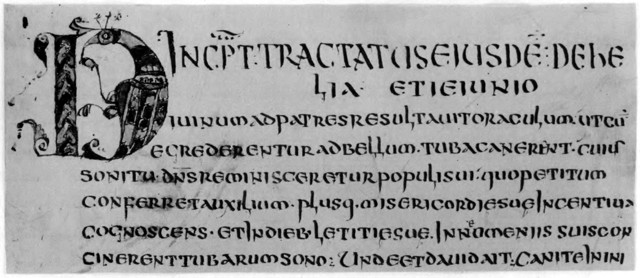 INCP̄T· TRACTATUS EIUSDĒ· DE HE
LIA ET IEIUNIO
DIUINUM AD PATRES RESULTAUIT ORACULUM UT CŪ
EGREDERENTUR AD BELLUM· TUBA CANERENT· CUIUS
SONITU· DN̄S REMINISCERETUR POPULI SUI· QUO PETITUM
CONFERRET AUXILIUM· PLUSQ· MISERICORDIE SUE INCENTIUA
COGNOSCENS· ET IN DIEB· LETITIE SUE· IN NOMENIIS SUIS CON
CINERENT TUBARUM SONO· UNDE ET DAUID AIT· CANITE INI NI